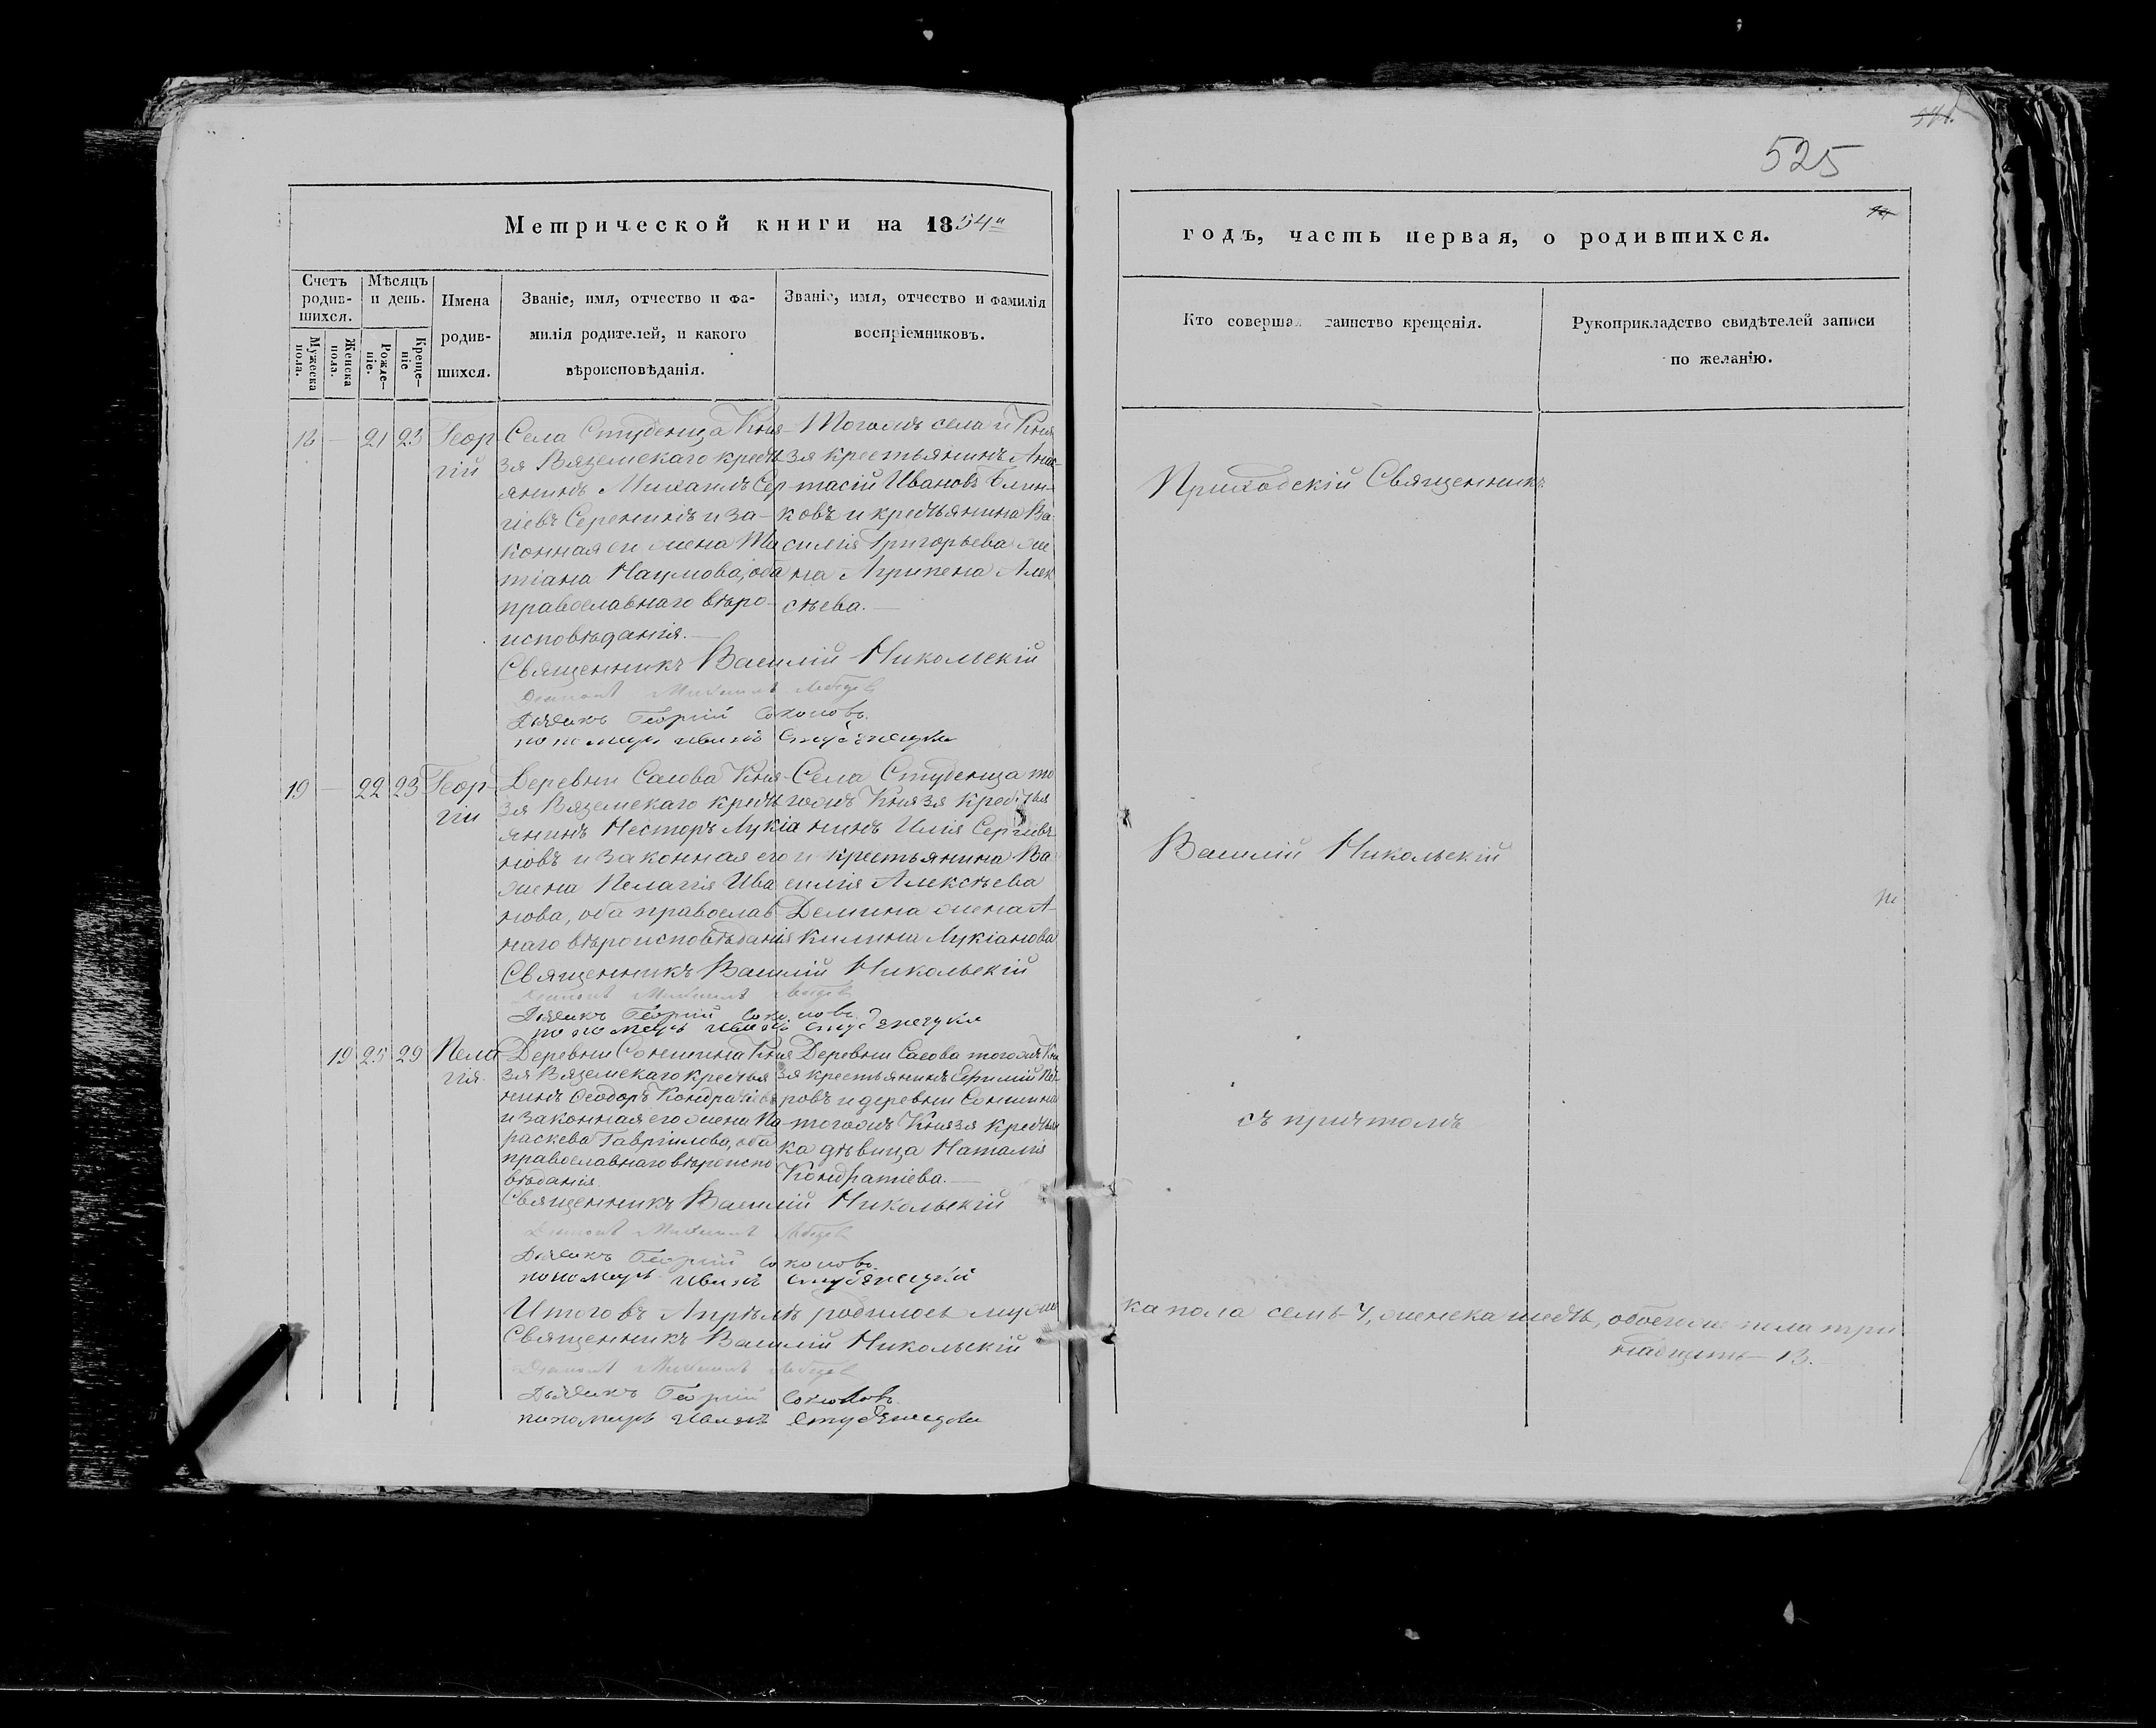 525
Метрической книги на 1854й
годъ, часть первая, о родившихся.
Счетъ родив-шихся.
Мѣсяцъ и день.
Мужеска пола.
Женска пола.
Рожде-ніе.
Креще-ніе
Имена
родив-
шихся.
Званіе, имя, отчество и фа-
милія родителей, и какого
вѣроисповѣданія.
Званіе, имя, отчество и фамилія
воспріемниковъ.
Кто совершал таинство крещенія.
Рукоприкладство свидѣтелей записи
по желанію.
18 — 21 23 Геор
гій
Села Студенца Кня-
зя Вяземскаго крестъ
янинъ Михаилъ Сер
гіевъ Серенинъ и за-
конная ег жена Та
тіана Наумова, оба
православнаго вѣро-
исповѣданія.—
Тогожъ села и Кня
зя крестьянинъ Анас-
тасій Ивановъ Блин
ковъ и крестьянина Ва
силія Григорьева же
на Агрипена Алек
сѣева.—
Священникъ Василій Никольскій
Діаконъ Михаилъ Лебедев
Дьячикъ Георгій Соколовъ
пономарь Иванъ Студенецки
Приходскій Священникъ
19 — 22 23 Геор-
гій
Деревни Сасова Кня-
зя Вяземскаго кресть
янинъ Несторъ Лукіа
новъ и законная его
жена Пелагія Ива
нова, оба православ
наго вѣроисповѣданія
Села Студенца то
гожъ Князя крестья
нинъ Илія Сергіевъ
и крестьянина Ва
силія Алексѣева
Демина жена А-
килина Лукіанова
Священникъ Василій Никольскій
Діаконъ Михаилъ Лебедев
Дьячикъ Георгій Соколовъ
пономарь Иванъ Студенецки
Василій Никольскій
19 25 29 Пела
гія.
Деревни Сонинина Кня
зя Вяземскаго крестья
нинъ Ѳеодоръ Кондратіевъ
и законная его жена Па-
раскева Гавріилова, оба
православнаго вѣроиспо
вѣданія.
Деревни Сасова тогожъ Кня
зя крестьянинъ Пет-
ровъ и деревни Сонинина
тогожъ Князя крестьян
ка дѣвица Наталія
Кондратіева.—
Священникъ Василій Никольскій
Діаконъ Михаилъ Лебедев
Дьячикъ Георгій Соколовъ
пономарь Иванъ Студенецкій
съ причтомъ
Итого въ Апрѣлѣ родилось муже
ка пола семь-7, женска шесть, обоего же пола три
надцать—13.—
Священникъ Василій Никольскій
Діаконъ Михаилъ Лебедев
Дьячикъ Георгій Соколовъ
пономарь Иванъ Студенецки